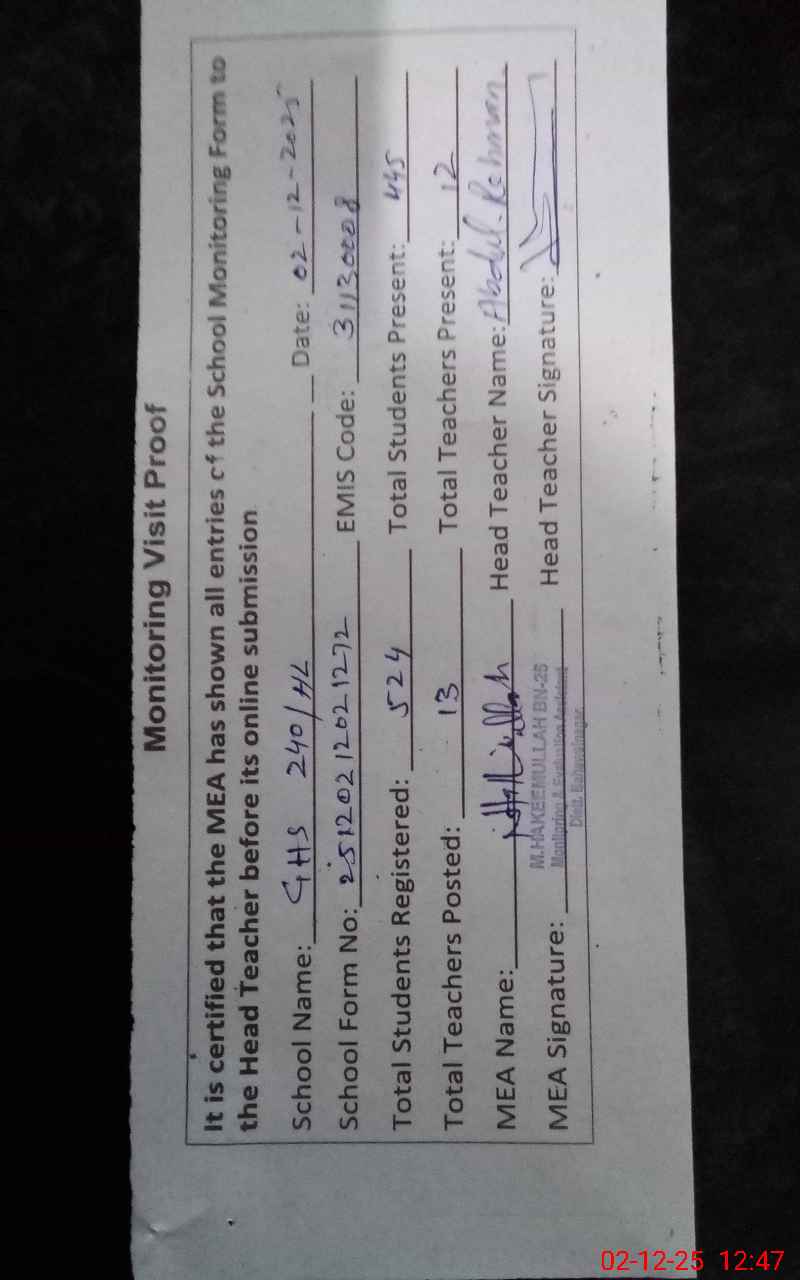 Monitoring Visit Proof
It is certified that the MEA has shown all entries of the School Monitoring Form to
the Head Teacher before its online submission
School Name: GHS 240/HL Date: 02-12-2025
School Form No: 2512021202 1272 EMIS Code: 31130008
Total Students Registered: 524 Total Students Present: 445
Total Teachers Posted: 13 Total Teachers Present: 12
MEA Name: Head Teacher Name: Abdul-Rehman
M.HAKEEMULLAH BN-25
MEA Signature: Head Teacher Signature:
Monitoring & Evaluation Assistant
Distt. Bahawalnagar
02-12-25 12:47